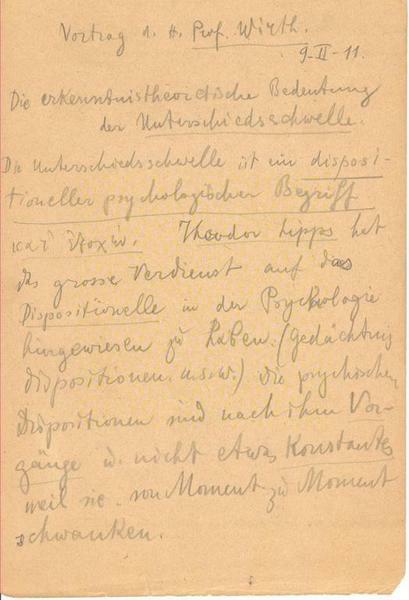 Vortrag d. H. Prof. Wirth.
9-II-11.
Die erkenntnistheoretische Bedeutung
der Unterschiedsschwelle.
Die Unterschiedsschwelle ist ein disposi-
tioneller psychologischer Begriff
κατ' ἐξοχήν. Theodor Lipps hat
das grosse Verdienst auf das
Dispositionelle in der Psychologie
hingewiesen zu haben. (Gedächtnis
dispositionen u.s.w.) Die psychischen
Dispositionen sind nach ihm Vor-
gänge u. nicht etwas Konstantes
weil sie von Moment zu Moment
schwanken.